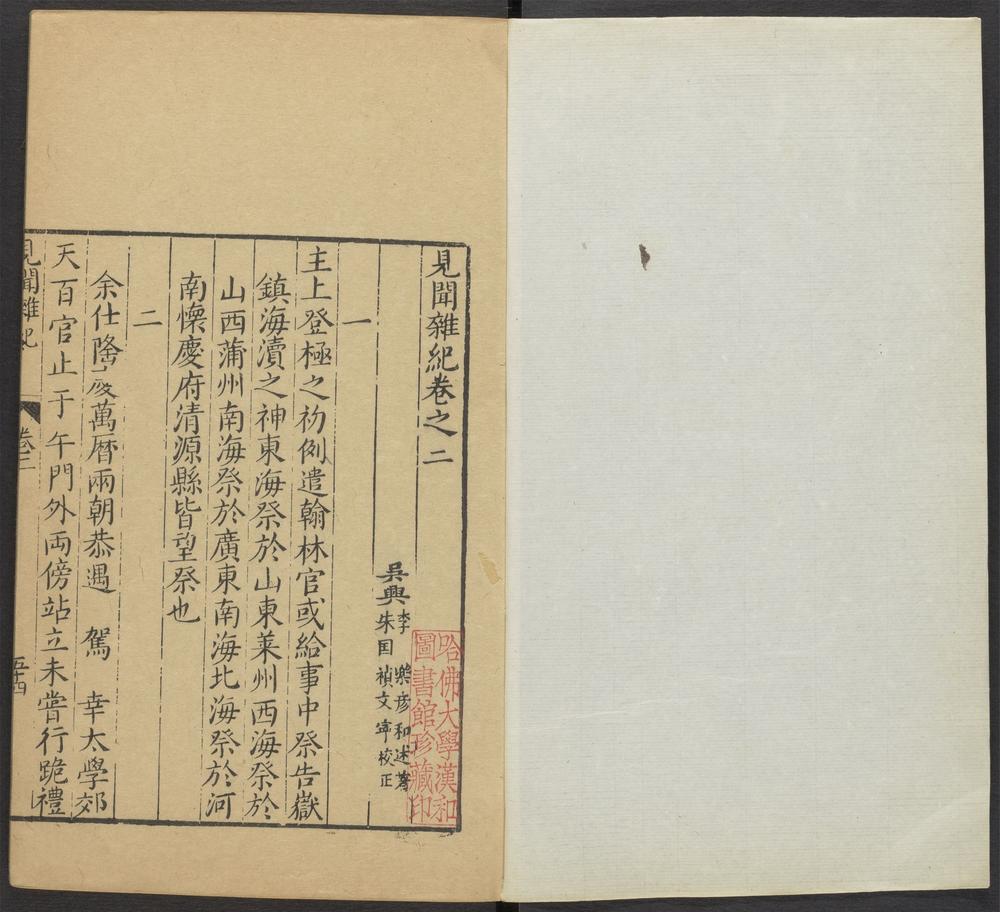 見聞雜紀卷之二
吳興
李 樂彥和述著
朱国禎文寧校正
哈佛大學漢和
圖書館珍藏印
一
主上登極之初例遣翰林官或給事中祭告嶽
鎮海瀆之神東海祭於山東萊州西海祭於
山西蒲州南海祭於廣東南海北海祭於河
南懷慶府清源縣皆望祭也
二
余仕隆慶萬曆兩朝恭遇 駕 幸太學郊
天百官止于午門外両傍站立未嘗行跪禮
見聞雜紀
卷二
五十四